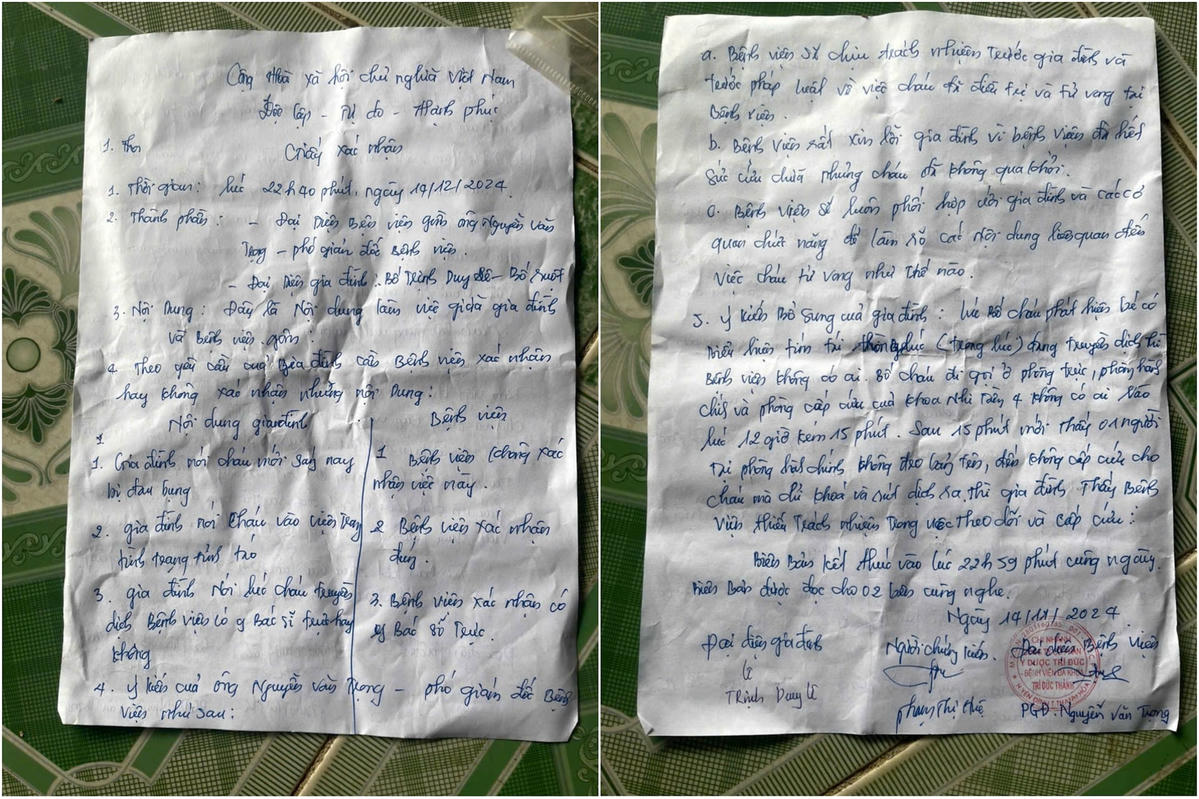 Cộng Hòa xã hội chủ nghĩa Việt Nam
Độc lập - Tự do - Hạnh phúc
1. Thời
Giấy xác nhận
1. Thời gian: lúc 22h40 phút, ngày 14/12/2024.
2. Thành phần: - Đại Diện Bên viện gồm ông Nguyễn Văn
Trọng - phó giám đốc Bệnh viện.
- Đại Diện gia đình. Bố Trịnh Duy Lê - Bố ruột
3. Nội Dung: Đây là Nội dung làm việc giữa gia đình
và Bệnh viện gồm:
4. Theo yêu cầu của Gia đình cần Bệnh viện xác nhận
hay không xác nhận những nội Dung:
Nội dung gia đình
1
1. Gia đình nói cháu mới sáng nay
bị đau bụng
2. gia đình nói cháu vào viện trong
tình trạng tỉnh táo
3. gia đình Nói lúc cháu truyền
dịch Bệnh viện có y Bác sĩ trực hay
không
Bệnh viện
1 Bệnh viện không xác
nhận việc này.
2 Bệnh viện xác nhận
đúng.
3. Bệnh viện xác nhận có
y Bác sĩ Trực.
4. Ý kiến của ông Nguyễn Văn Trọng - phó giám đốc Bệnh
viện như sau:
a. Bệnh viện sẽ chịu trách nhiệm trước gia đình và
trước pháp luật về việc cháu đã điều trị và tử vong tại
Bệnh viện.
b. Bệnh viện rất xin lỗi gia đình vì bệnh viện đã hết
sức cứu chữa nhưng cháu đã không qua khỏi.
c. Bệnh viện sẽ luôn phối hợp với gia đình và các cơ
quan chức năng để làm rõ các nội dung liên quan đến
việc cháu tử vong như thế nào.
5. Ý kiến Bổ Sung của gia đình: lúc Bố cháu phát hiện bé có
biểu hiện tím tái (trong lúc) đang truyền dịch thì
Bệnh viện không có ai. Bố cháu đi gọi ở phòng trực, phòng hành
chính và phòng cấp cứu của khoa Nhi Tầng 4 không có ai Vào
lúc 12 giờ kém 15 phút. Sau 15 phút mới thấy 01 người
tại phòng hành chính không đeo bảng tên, đến không cấp cứu cho
cháu mà chỉ khoá và rút dịch ra, thì gia đình Thấy Bệnh
Viện thiếu Trách nhiệm Trong việc Theo dõi và cấp cứu:
Biên Bản kết thúc vào lúc 22h59 phút cùng ngày.
Biên Bản được đọc cho 02 bên cùng nghe.
Ngày 14/12/2024
Đại diện gia đình
Lê
Trịnh Duy Lê
Người chứng kiến.
Phạm Thị Huệ
Đại diện Bệnh viện
CHI NHÁNH
Y DƯỢC TRÍ ĐỨC
- BỆNH VIỆN ĐA KHOA
TRÍ ĐỨC THÀNH
PGĐ. Nguyễn Văn Trọng